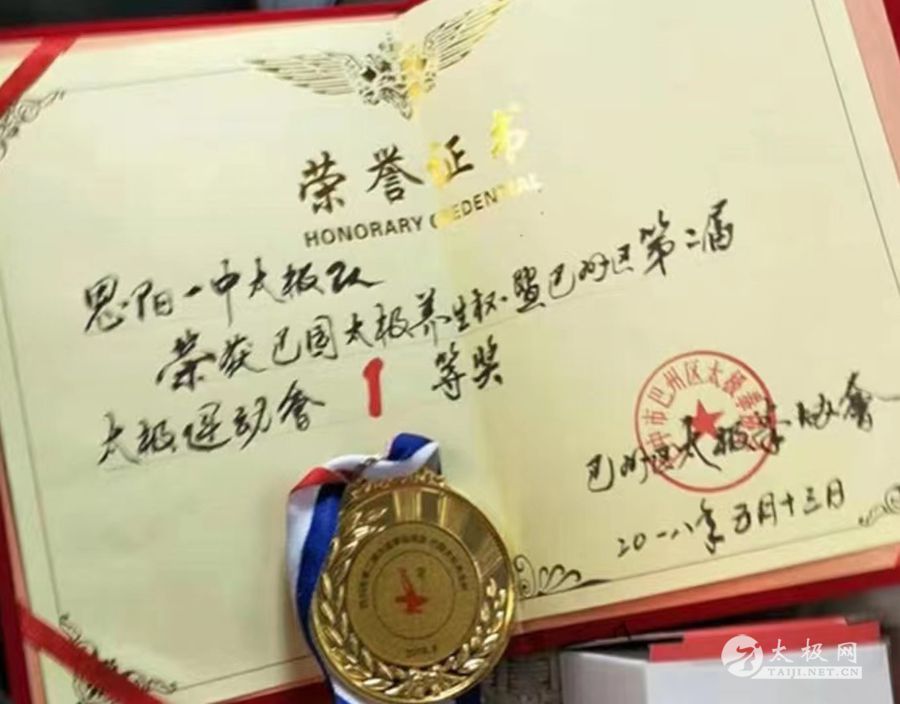 荣誉证书
HONORARY CREDENTIAL
恩阳一中太极队
荣获巴国太极养生杯·暨巴州区第二届
太极运动會 1 等奖
巴中市巴州区太极拳
巴州区太极拳协會
二0一八年五月十三日
2018.5
太极网
TAIJI.NET.CN